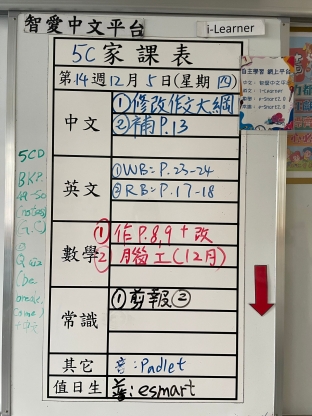 智愛中文平台
i-Learner
5C家課表
第14週12月5日(星期四)
中文
①修改作文大綱
②補P.13
英文
①WB: P.23-24
②RB: P.17-18
數學
①作P.8,9+改
② 腦工(12月)
常識
①剪報②
其它
音:Padlet
值日生
普:esmart
5CD
自主學習 網上平台